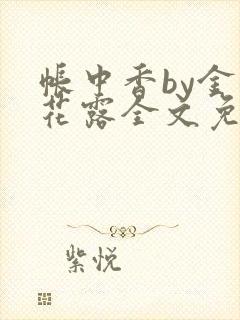 帐中香by金
花露全文免
紫悦